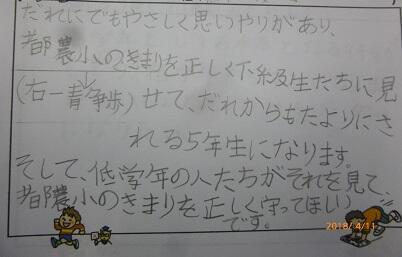 だれにでもやさしく思いやりがあり、
都農小のきまりを正しく下級生たちに見
(右一青争歩)せて、だれからもたよりにさ
れる5年生になります。
そして、低学年の人たちがそれを見て、
都農小のきまりを正しく守ってほしい
です。
2018/4/11